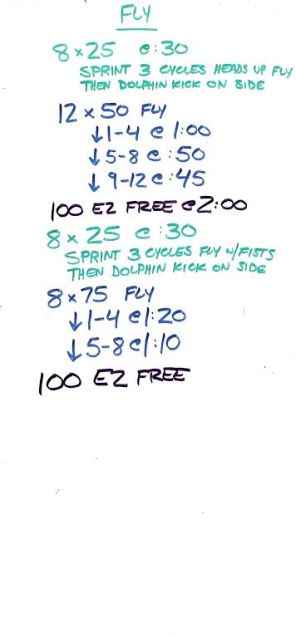 FLY
8 x 25 @ :30
SPRINT 3 CYCLES HEADS UP FLY
THEN DOLPHIN KICK ON SIDE
12 x 50 FLY
↓1-4 @ 1:00
↓5-8 @ :50
↓9-12 @ :45
100 EZ FREE @ 2:00
8 x 25 @ :30
SPRINT 3 CYCLES FLY w/FISTS
THEN DOLPHIN KICK ON SIDE
8 x 75 FLY
↓1-4 @ 1:20
↓5-8 @ 1:10
100 EZ FREE